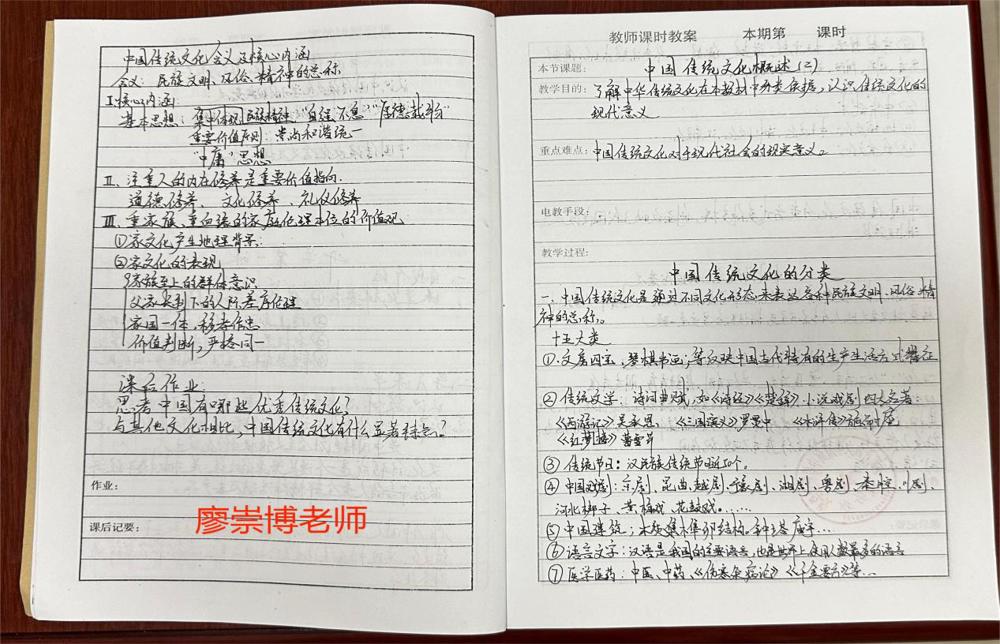 中国传统文化含义及核心内涵
含义：民族文明、风俗、精神的总称
I.核心内涵：
基本思想：集中体现民族精神，"自强不息""厚德载物"
重要价值原则：崇尚和谐统一
"中庸"思想
II、注重人的内在修养是重要价值指向.
道德修养、文化修养、礼仪修养
III、重家族、重血缘的家庭伦理本位的价值观
①家文化产生地理背景.
②家文化的表现
家族至上的群体意识
父家长制下的人际差序
家国一体，移孝作忠
价值判断，严格同一
课后作业：
思考中国有哪些优秀传统文化？
与其他文化相比，中国传统文化有什么显著特点？
作业：
课后记要：
廖崇博老师
教师课时教案 本期第 课时
本节课题： 中国传统文化概述（二）
教学目的：了解中华传统文化在本教材中分类依据，认识传统文化的
现代意义
重点难点：中国传统文化对于现代社会的现实意义。
电教手段：
教学过程：
中国传统文化的分类
一、中国传统文化是通过不同文化形态来表达各种民族文明、风俗、精
神的总称。
十五大类
①.文房四宝，琴棋书画，等汉对中国古代特有的生产生活方式
②传统文学：诗词曲赋，如《诗经》《楚辞》小说戏剧 四大名著：
《西游记》吴承恩、《三国演义》罗贯中 《水浒传》施耐庵
《红梦楼》曹雪芹
③传统节日：汉民族传统节日近50个。
④中国戏剧：京剧、昆曲、越剧、豫剧、湘剧、粤剧、秦腔、川剧、
河北梆子、黄梅戏、花鼓戏......
⑤中国建筑：木质 榫卯结构。钟 塔 庙宇...
⑥语言文字：汉语是我国的主要语言，也是世界上使用人数最多的语言
⑦医学医药：中医、中药、《伤寒杂病论》《千金要方》等...